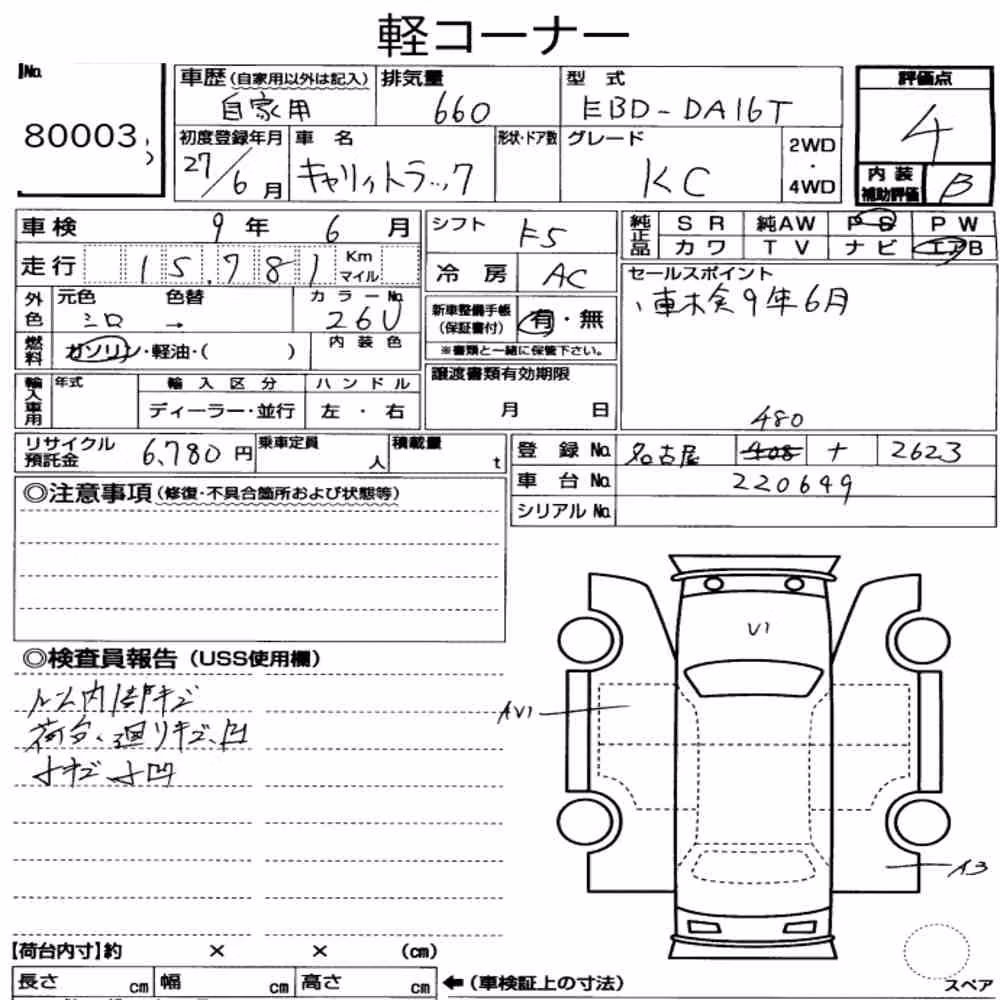 軽コーナー
No.
80003
車歴 (自家用以外は記入) 自家用
排気量 660
型式 EBD-DA16T
評価点 4
初度登録年月 27/6月
車名 キャリィトラック
形状・ドア数
グレード KC
2WD・4WD
内装補助評価 B
車検 9年 6月
シフト F5
純正品 SR 純AW PS PW
カワ TV ナビ エアB
走行 15,781 Km マイル
冷房 AC
セールスポイント
車検9年6月
外色 元色 シロ 色替 → カラーNo. 26U
新車整備手帳(保証書付) 有・無
※書類と一緒に保管下さい。
燃料 ガソリン・軽油・( )
内装色
輸入車用 年式 輸入区分 ハンドル
ディーラー・並行 左・右
譲渡書類有効期限
月 日
480
リサイクル預託金 6,780円
乗車定員 人
積載量 t
登録No. 名古屋 408 2623
車台No. 220649
シリアルNo.
◎注意事項(修復・不具合箇所および状態等)
◎検査員報告(USS使用欄)
内外キズ
荷台、廻りキズ、凹
小キズ、小凹
V1
AV1
A3
【荷台内寸】約 × × (cm)
長さ cm 幅 cm 高さ cm
←(車検証上の寸法)
スペア